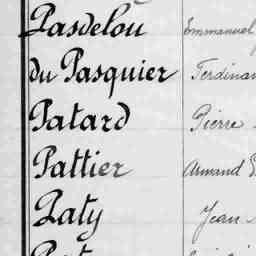 Pasdelou Emmanuel
du Pasquier Ferdinan
Patard Pierre
Pattier Armand
Paty Jean